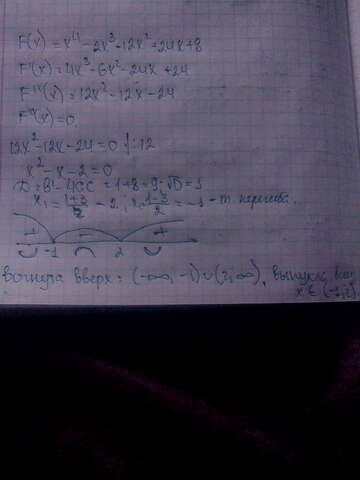 F(x) = x⁴ - 2x³ - 12x² + 24x + 8
F'(x) = 4x³ - 6x² - 24x + 24
F''(x) = 12x² - 12x - 24
F''(x) = 0
12x² - 12x - 24 = 0 |:12
x² - x - 2 = 0
D = b² - 4ac = 1 + 8 = 9 √D = 3
x₁ = (1+3)/2 = 2, x₂ = (1-3)/2 = -1 - т. перегиба.
+ - +
-1 2
вогнута вверх: (-∞; -1) ∪ (2; ∞), выпукла
x ∈ (-1; 2)